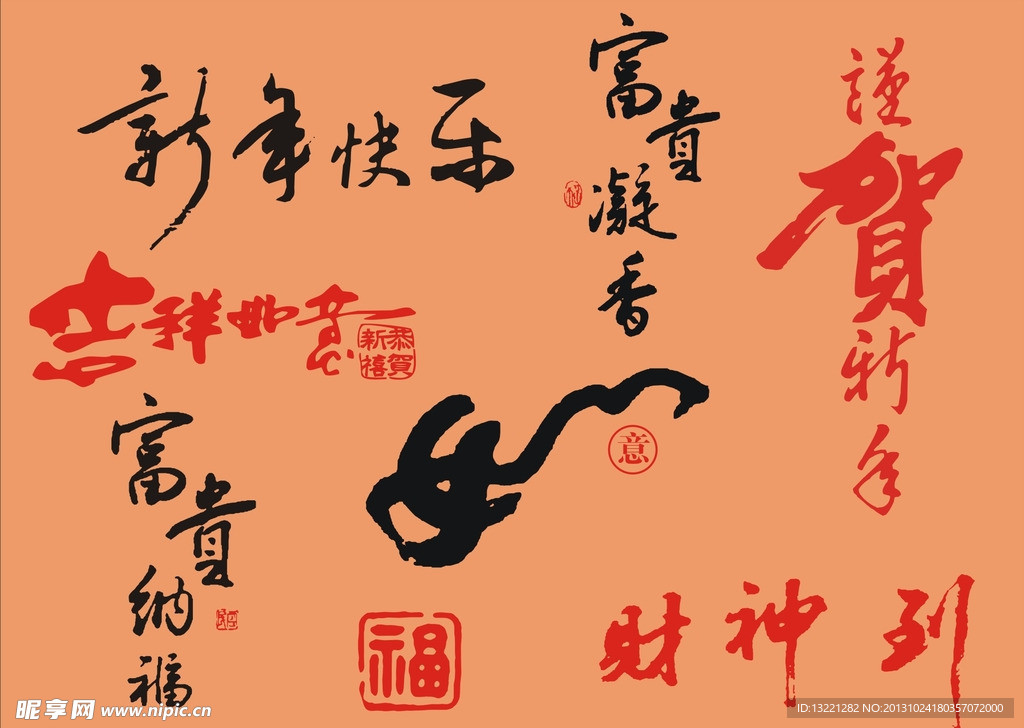 新年快乐
富貴凝香
謹賀新年
吉祥如意
恭賀新禧
富貴納福
如
意
福
财神到
昵享网 www.nipic.cn
ID:13221282 NO:20131024180357072000